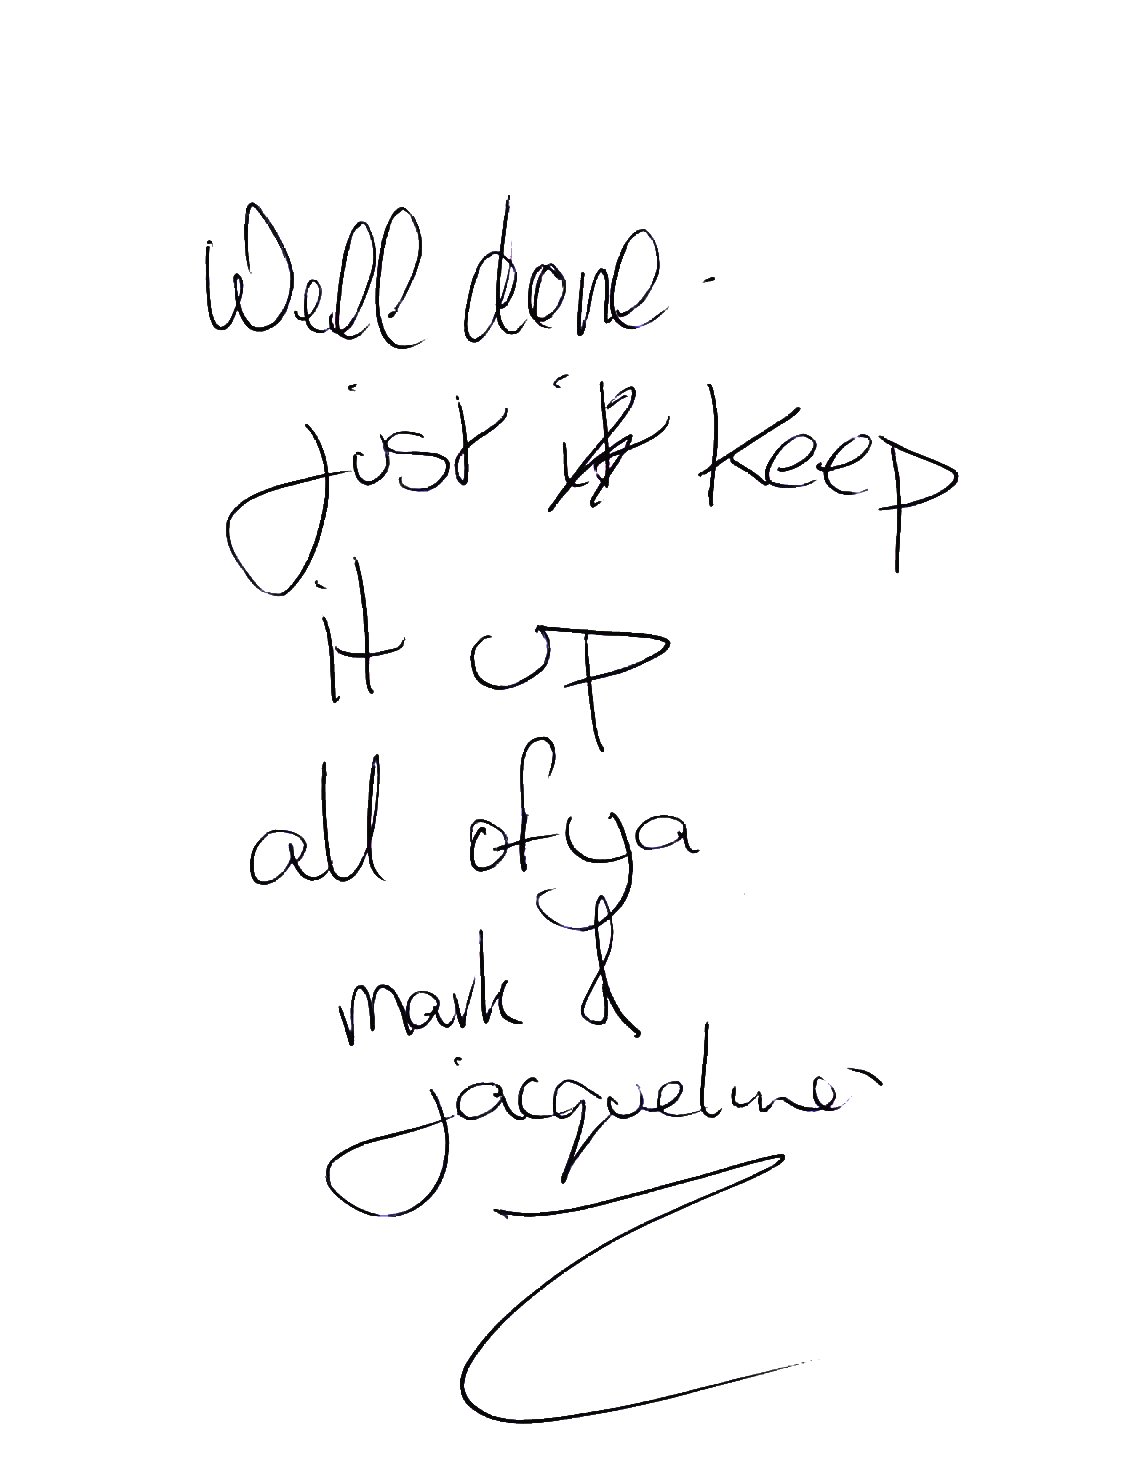 Well done.
just it keep
it up
all of ya
mark &
jacqueline